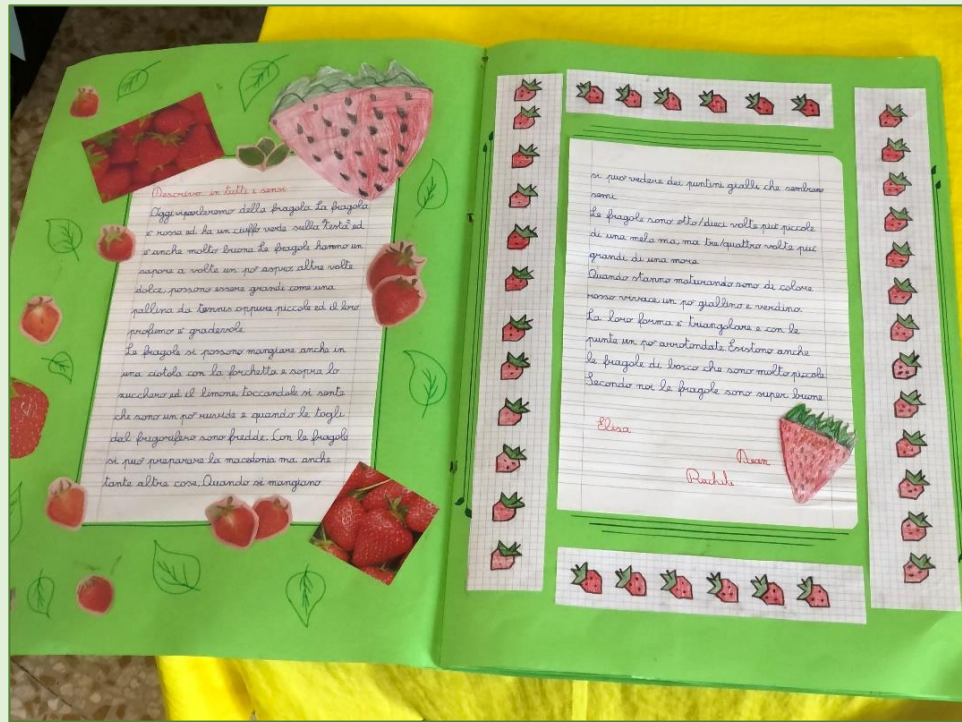 Descrivo in tutti i sensi
Oggi vi parleremo della fragola. La fragola
è rossa ed ha un ciuffo verde sulla "testa" ed
è anche molto buona. Le fragole hanno un
sapore a volte un po' aspro altre volte
dolce, possono essere grandi come una
pallina da tennis oppure piccole ed il loro
profumo è gradevole.
Le fragole si possono mangiare anche in
una ciotola con la forchetta e sopra lo
zucchero ed il limone, toccandole si sente
che sono un po' ruvide e quando le togli
dal frigorifero sono fredde. Con le fragole
si può preparare la macedonia ma anche
tante altre cose. Quando si mangiano
si può vedere dei puntini gialli che sembrano
semi.
Le fragole sono otto/dieci volte più piccole
di una mela ma, ma tre/quattro volte più
grandi di una mora.
Quando stanno maturando sono di colore
rosso vivace, un po' giallino e verdino.
La loro forma è triangolare e con le
punte un po' arrotondate. Esistono anche
le fragole di bosco che sono molto piccole.
Secondo noi le fragole sono super buone
Elisa
Dean
Rachele